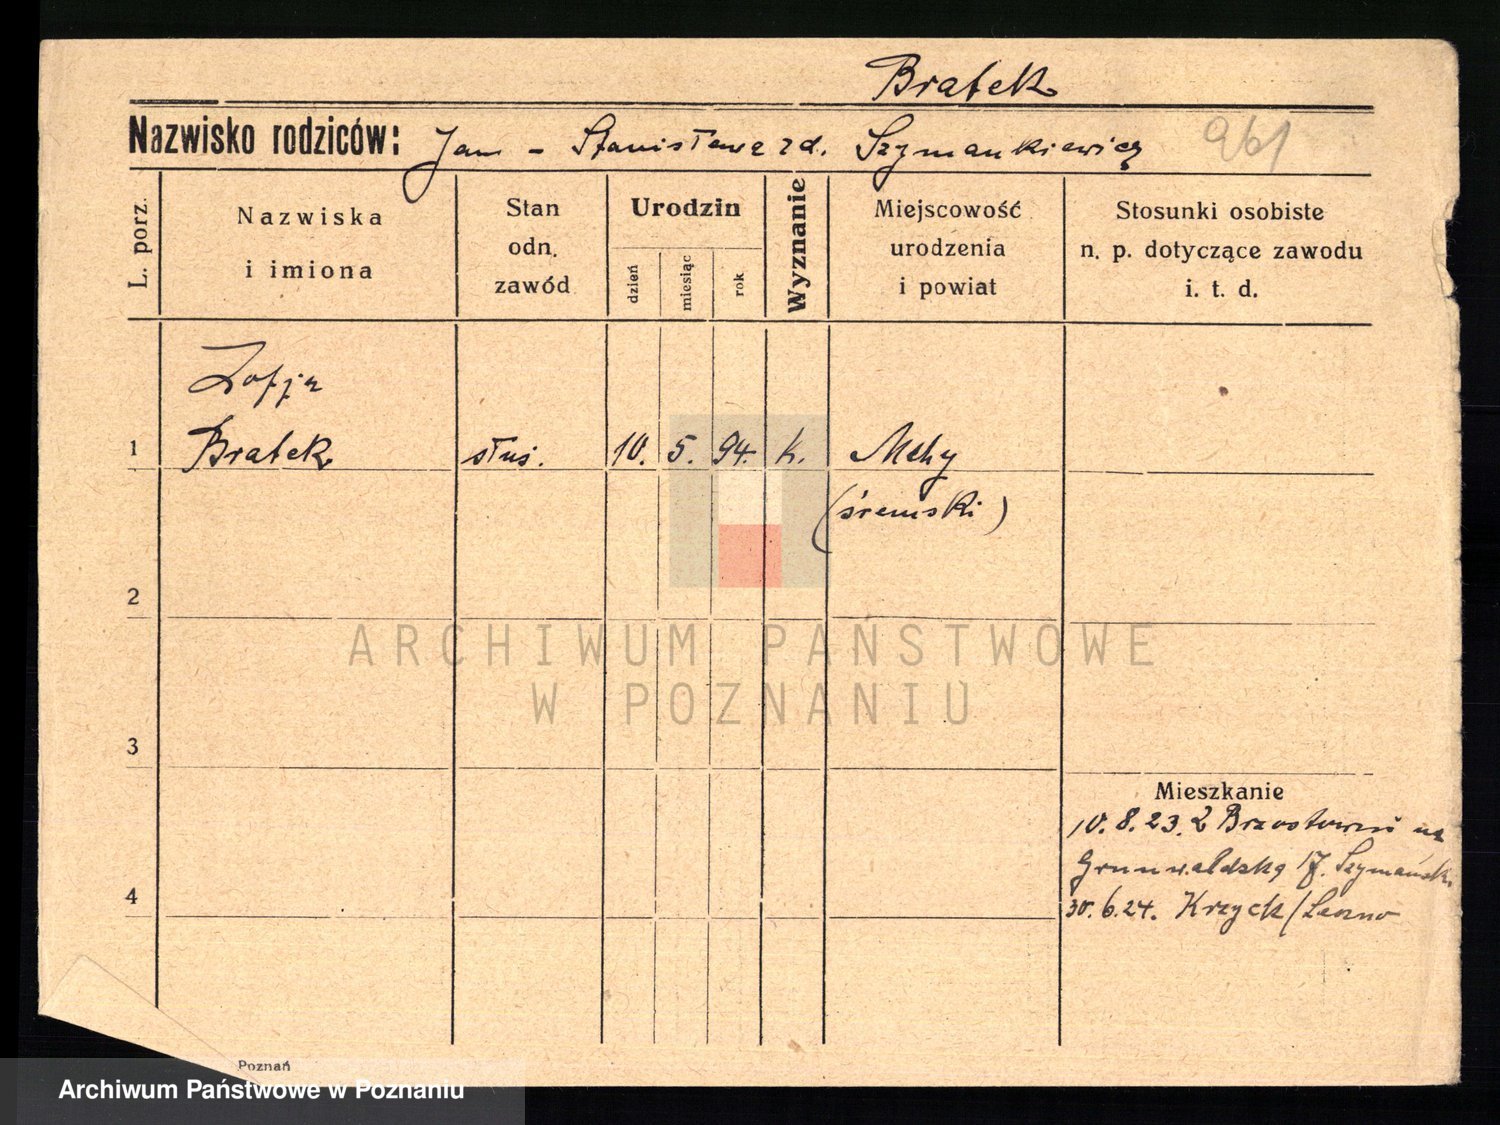 Bratek
Nazwisko rodziców: Jan - Stanisława zd. Szymankiewicz
961
L. porz.
Nazwiska
i imiona
Stan
odn.
zawód
Urodzin
dzień
miesiąc
rok
Wyznanie
Miejscowość
urodzenia
i powiat
Stosunki osobiste
n. p. dotyczące zawodu
i. t. d.
Zofja
1 Bratek służ. 10. 5. 94. k. Mchy
(śremski)
2
3
4
Mieszkanie
10. 8. 23. z na
Grunwaldzką 17. Szymański
30. 6. 24. Krzyck/Leszno
ARCHIWUM PAŃSTWOWE
W POZNANIU
Poznań
Archiwum Państwowe w Poznaniu